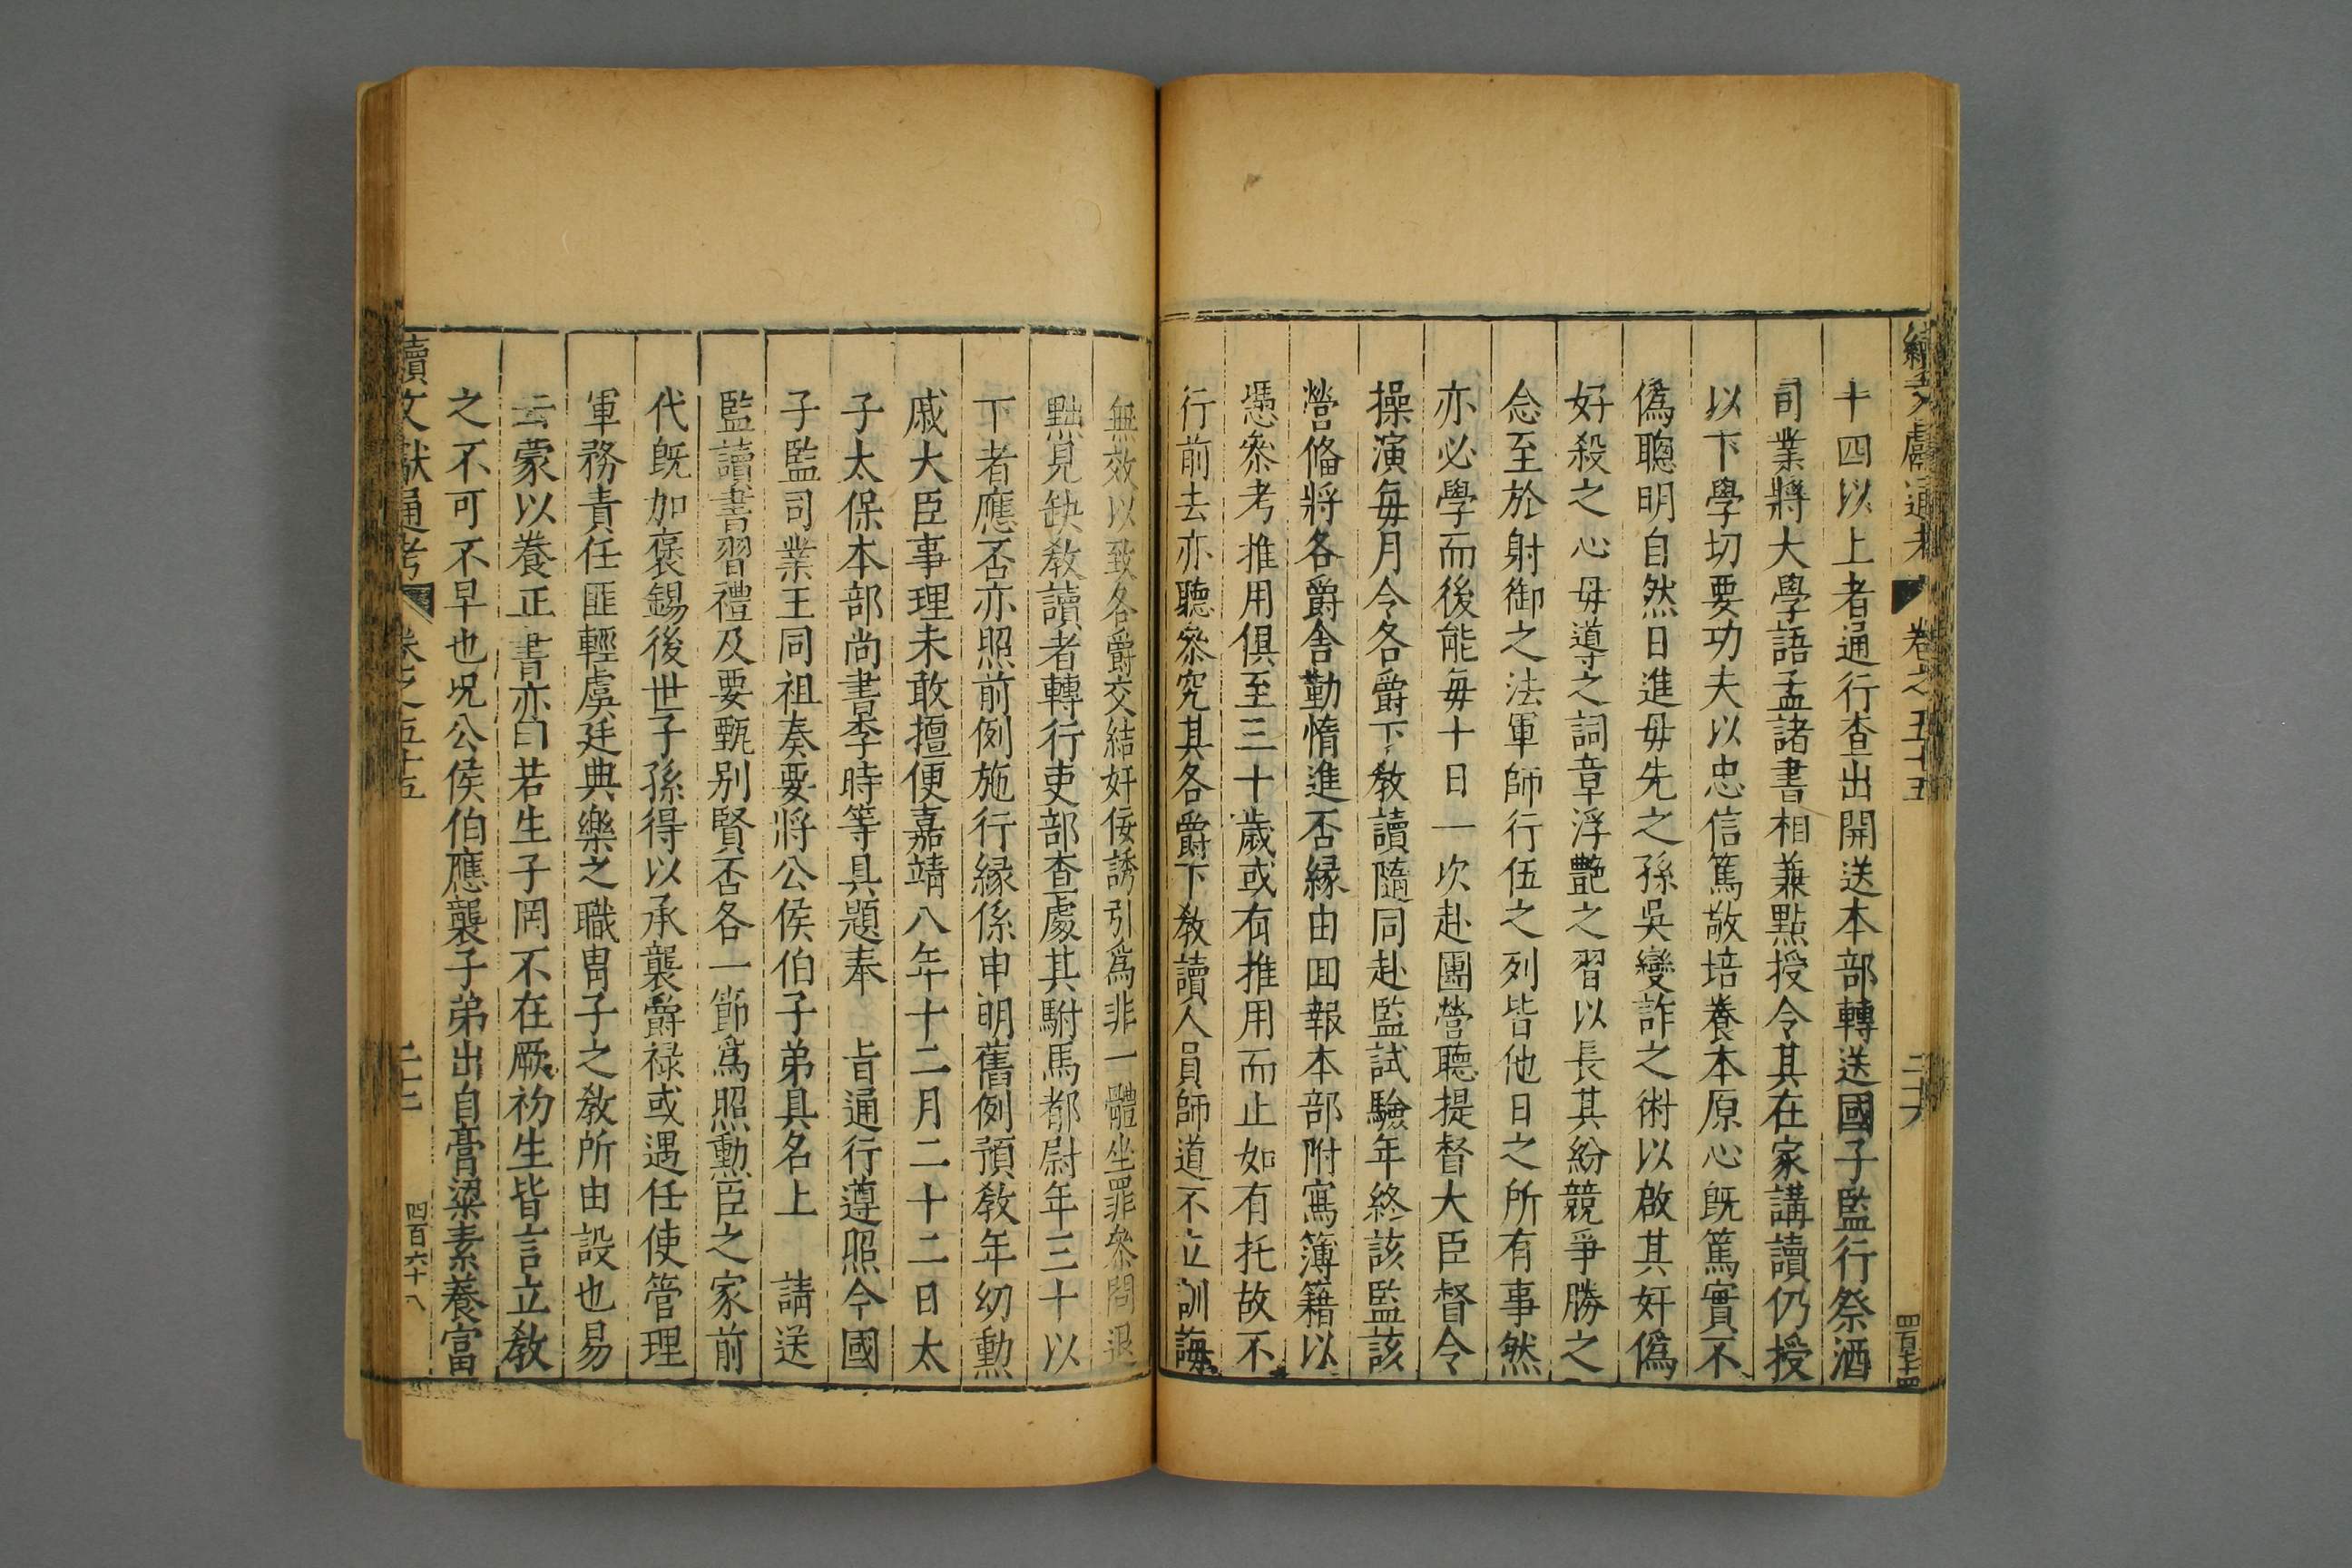 續文獻通考 卷之五十五 二十六
十四以上者通行查出開送本部轉送國子監行祭酒
司業將大學語孟諸書相兼點授令其在家講讀仍授
以下學切要功夫以忠信篤敬培養本原心既篤實不
偽聰明自然日進毋先之孫吳變詐之術以啟其奸偽
好殺之心毋導之詞章浮艷之習以長其紛競爭勝之
念至於射御之法軍師行伍之列皆他日之所有事然
亦必學而後能每十日一次赴團營聽提督大臣督令
操演每月令各爵下教讀隨同赴監試驗年終該監該
營俻將各爵舍勤惰進否縁由回報本部附寫簿籍以
憑叅考推用俱至三十歲或有推用而止如有托故不
行前去亦聽叅究其各爵下教讀人員師道不立訓誨
無效以致各爵交結奸佞誘引爲非一體坐罪叅問退
黜見缺教讀者轉行吏部查處其駙馬都尉年三十以
下者應否亦照前例施行縁係申明舊例預教年幼勳
戚大臣事理未敢擅便嘉靖八年十二月二十二日太
子太保本部尚書李時等具題奉 旨通行遵照今國
子監司業王同祖奏要將公侯伯子弟具名上 請送
監讀書習禮及要甄別賢否各一節爲照勳臣之家前
代既加褒錫後世子孫得以承襲爵祿或遇任使管理
軍務責任匪輕虞廷典樂之職冑子之教所由設也易
云蒙以養正書亦曰若生子罔不在厥初生皆言立教
之不可不早也况公侯伯應襲子弟出自膏粱素養富
續文獻通考 卷之五十五 二十七 四百六十八